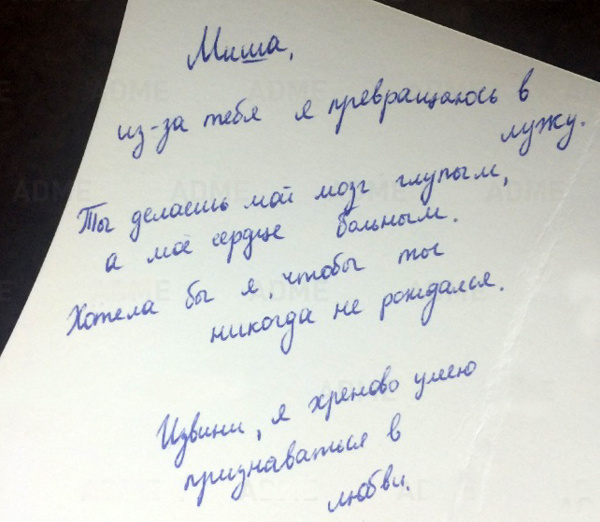 Миша,
из-за тебя я превращаюсь в
лужу.
Ты делаешь мой мозг глупым,
а моё сердце больным.
Хотела бы я, чтобы ты
никогда не рождался.
Извини, я хреново умею
признаваться в
любви.
ADME
ADME
ADME
ADME
ADME